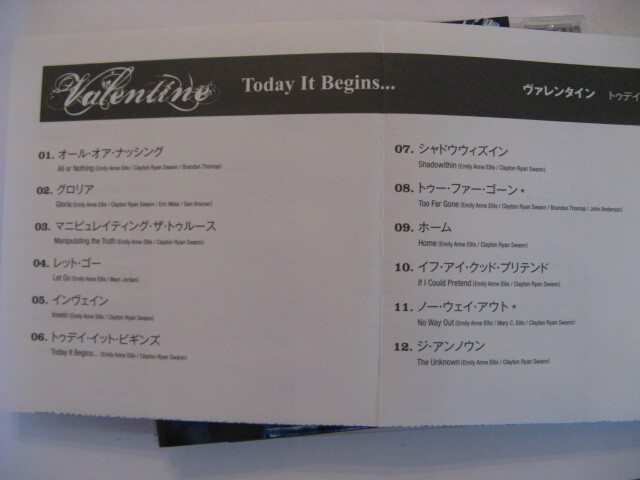 Valentine
Today It Begins...
ヴァレンタイン トゥデイ
01. オール・オア・ナッシング
All or Nothing (Emily Anne Ellis / Clayton Ryan Swann / Brandon Thomas)
02. グロリア
Gloria (Emily Anne Ellis / Clayton Ryan Swann / Eric Mista / Dan Kramer)
03. マニピュレイティング・ザ・トゥルース
Manipulating the Truth (Emily Anne Ellis / Clayton Ryan Swann)
04. レット・ゴー
Let Go (Emily Anne Ellis / Marc Jordan)
05. インヴェイン
Invein (Emily Anne Ellis / Clayton Ryan Swann)
06. トゥデイ・イット・ビギンズ
Today It Begins... (Emily Anne Ellis / Clayton Ryan Swann)
07. シャドウウィズイン
Shadowithin (Emily Anne Ellis / Clayton Ryan Swann)
08. トゥー・ファー・ゴーン *
Too Far Gone (Emily Anne Ellis / Clayton Ryan Swann / Brandon Thomas / John Anderson)
09. ホーム
Home (Emily Anne Ellis / Clayton Ryan Swann)
10. イフ・アイ・クッド・プリテンド
If I Could Pretend (Emily Anne Ellis / Clayton Ryan Swann)
11. ノー・ウェイ・アウト *
No Way Out (Emily Anne Ellis / Mary C. Ellis / Clayton Ryan Swann)
12. ジ・アンノウン
The Unknown (Emily Anne Ellis / Clayton Ryan Swann)